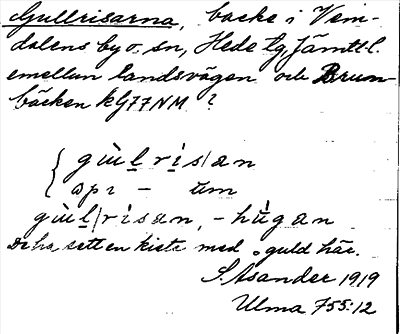 Gullrisarna, backe i Vem-
dalens by o. sn, Hede tg, Jämtl. l.
emellan landsvägen och Brun-
bäcken k G77NM ?
{ gùl̲ rìs/an
api – um
gùl̲/rìsan, – hùgan
De ha sett en kista med guld här.
S. Åsander 1919
Ulma 755:12